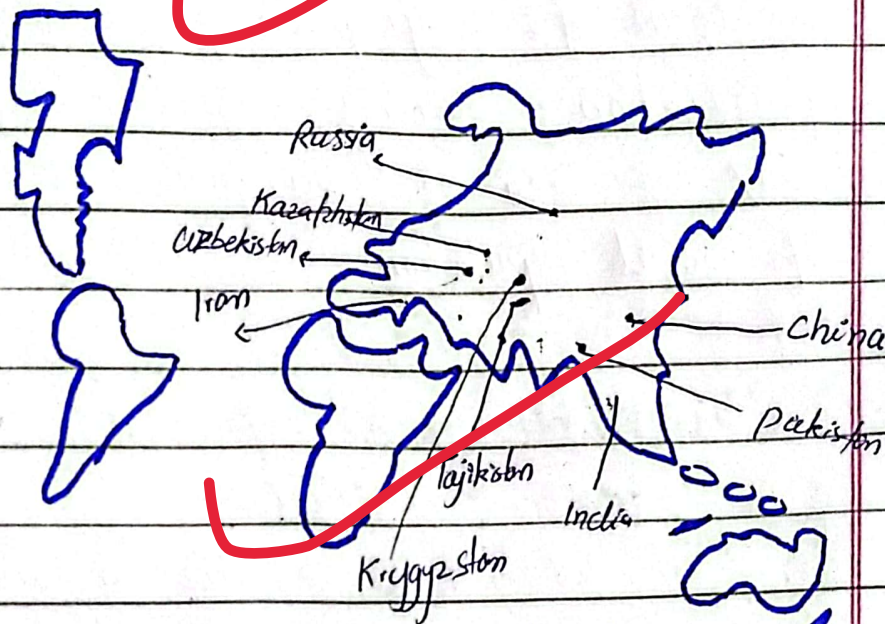 Russia
Kazakhstan
Uzbekistan
Iran
China
Pakiston
Tajikistan
India
Krygyzston